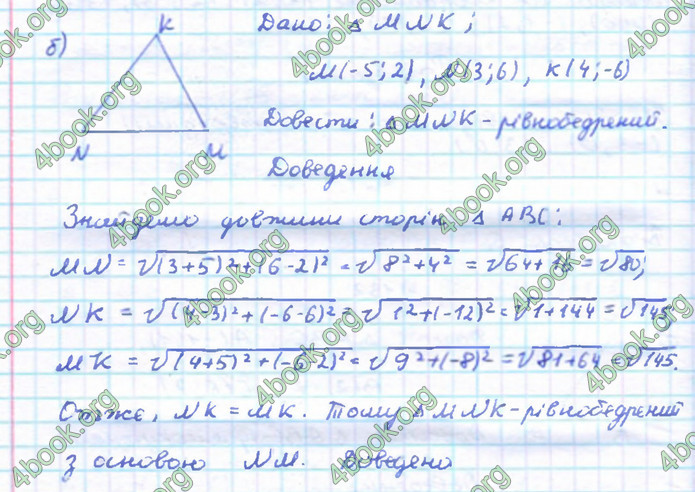 б) K Дано: △ MNK;
M(-5;2), N(3;6), K(4;-6)
Довести: △MNK - рівнобедрений.
N M
Доведення
Знайдемо довжини сторін △ ABC:
MN = √(3+5)²+(6-2)² = √8²+4² = √64+16 = √80;
NK = √(4-3)²+(-6-6)² = √1²+(-12)² = √1+144 = √145
MK = √(4+5)²+(-6-2)² = √9²+(-8)² = √81+64 = √145.
Отже, NK = MK. Тому △MNK - рівнобедрений
з основою NM. Доведено
4book.org